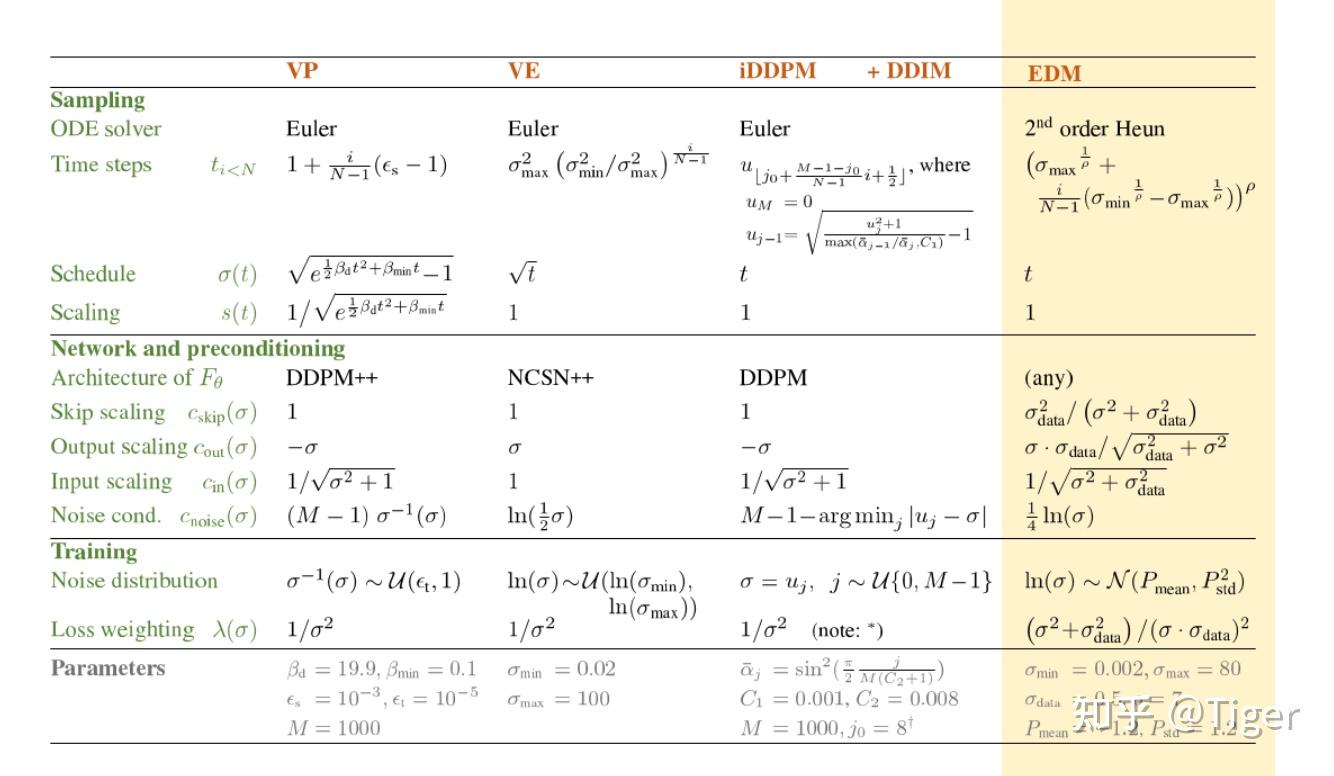 VP VE iDDPM + DDIM EDM
Sampling
ODE solver Euler Euler Euler 2nd order Heun
Time steps t_{i<N} 1 + \frac{i}{N-1}(ϵ_s − 1) σ_{max}^2 (σ_{min}^2/σ_{max}^2)^{\frac{i}{N-1}} u_{⌊j_0+\frac{M-1-j_0}{N-1}i+\frac{1}{2}⌋}, where (σ_{max}^{\frac{1}{ρ}} +
u_M = 0 \frac{i}{N-1}(σ_{min}^{\frac{1}{ρ}} − σ_{max}^{\frac{1}{ρ}}))^ρ
u_{j−1} = \sqrt{\frac{u_j^2+1}{max(\bar{α}_{j−1}/\bar{α}_j, C_1)} − 1}
Schedule σ(t) \sqrt{e^{\frac{1}{2}β_d t^2+β_{min} t} − 1} \sqrt{t} t t
Scaling s(t) 1/\sqrt{e^{\frac{1}{2}β_d t^2+β_{min} t}} 1 1 1
Network and preconditioning
Architecture of F_θ DDPM++ NCSN++ DDPM (any)
Skip scaling c_{skip}(σ) 1 1 1 σ_{data}^2/(σ^2 + σ_{data}^2)
Output scaling c_{out}(σ) −σ σ −σ σ · σ_{data}/\sqrt{σ_{data}^2 + σ^2}
Input scaling c_{in}(σ) 1/\sqrt{σ^2 + 1} 1 1/\sqrt{σ^2 + 1} 1/\sqrt{σ^2 + σ_{data}^2}
Noise cond. c_{noise}(σ) (M − 1) σ^{−1}(σ) ln(\frac{1}{2}σ) M−1−arg min_j |u_j − σ| \frac{1}{4} ln(σ)
Training
Noise distribution σ^{−1}(σ) ∼ U(ϵ_t, 1) ln(σ)∼U(ln(σ_{min}), σ = u_j, j ∼ U{0, M−1} ln(σ) ∼ N(P_{mean}, P_{std}^2)
ln(σ_{max}))
Loss weighting λ(σ) 1/σ^2 1/σ^2 1/σ^2 (note: *) (σ^2+σ_{data}^2)/(σ · σ_{data})^2
Parameters β_d = 19.9, β_{min} = 0.1 σ_{min} = 0.02 \bar{α}_j = sin^2(\frac{π}{2} \frac{j}{M(C_2+1)}) σ_{min} = 0.002, σ_{max} = 80
ϵ_s = 10^{−3}, ϵ_t = 10^{−5} σ_{max} = 100 C_1 = 0.001, C_2 = 0.008 σ_{data} = 0.5, ρ = 7
M = 1000 M = 1000, j_0 = 8† P_{mean} = −1.2, P_{std} = 1.2
知乎 @Tiger